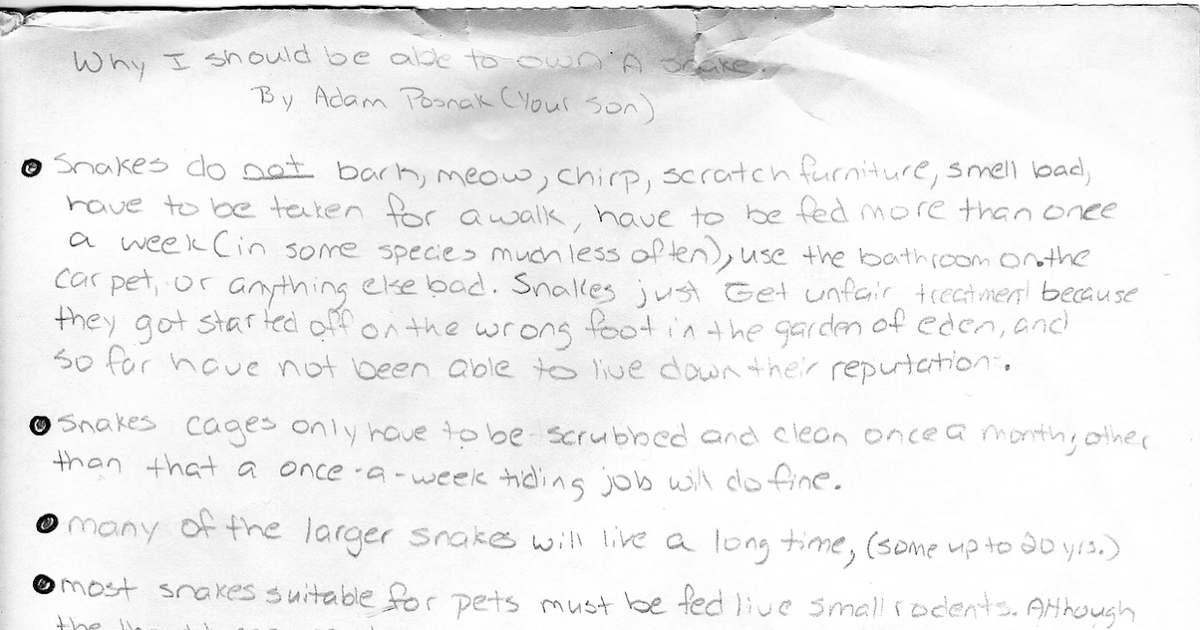 Why I should be able to own A snake.
By Adam Posnak (Your son)
Snakes do not bark, meow, chirp, scratch furniture, smell bad,
have to be taken for a walk, have to be fed more than once
a week (in some species much less often), use the bathroom on the
carpet, or anything else bad. Snakes just Get unfair treatment because
they got started off on the wrong foot in the garden of eden, and
so far have not been able to live down their reputation.
Snakes cages only have to be scrubbed and clean once a month, other
than that a once-a-week tiding job will do fine.
many of the larger snakes will live a long time, (some up to 20 yrs.)
most snakes suitable for pets must be fed live small rodents. Although
the